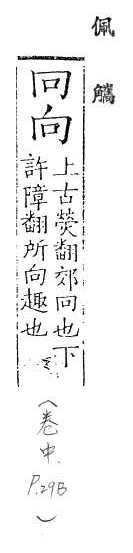 佩觿
冋向
上古熒翻郊冋也下
許障翻所向趣也
（卷中. P.29B）